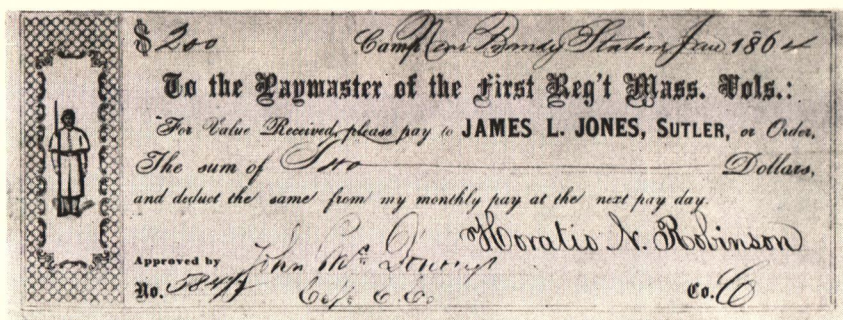 $ 2.00 Camp Near Brandy Station Jan 1864
To the Paymaster of the First Reg't Mass. Vols.:
For Value Received, please pay to JAMES L. JONES, SUTLER, or Order,
The sum of Two Dollars,
and deduct the same from my monthly pay at the next pay day.
Horatio N. Robinson
Approved by John
No. Co. C